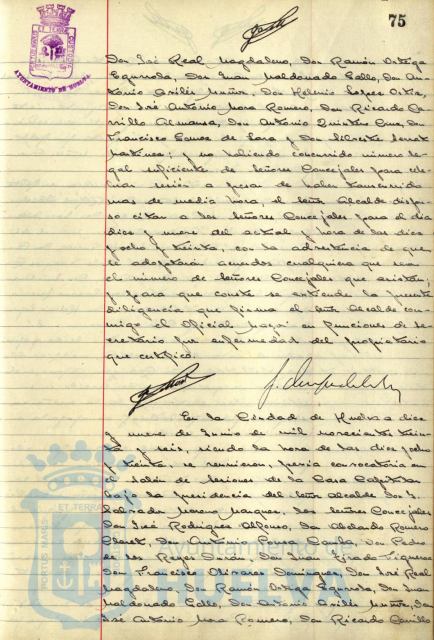 75
PORTUS MARIS ET TERRÆ CUSTODIA
AYUNTAMIENTO DE HUELVA
Don José Real Magdaleno, Don Ramón Ortega
Equrrola, Don Juan Maldonado Gallo, Don An-
tonio Avilés Muñoz, Don Helenio Lopez Ortiz,
Don José Antonio Mora Romero, Don Ricardo Ca-
rrillo Almansa, Don Antonio Quintero Cruz, Don
Francisco Gomez de Lara y Don Silvestre
Martinez; y no habiendo concurrido número le-
gal suficiente de Señores Concejales para cele-
brar sesión a pesar de haber transcurrido
mas de media hora, el Señor Alcalde dispu-
so citar a los Señores Concejales para el dia
diez y nueve del actual y hora de las diez
y ocho y treinta, con la advertencia de que
se adoptarán acuerdos cualquiera que sea
el número de Señores Concejales que asistan;
y para que conste se extiende la presente
diligencia que firma el Señor Alcalde con-
migo el Oficial Mayor en funciones de Se-
cretario por enfermedad del propietario
que certifico.
En la Ciudad de Huelva a diez
y nueve de Junio de mil novecientos trein-
ta y seis, siendo la hora de las diez y ocho
y treinta, se reunieron, previa convocatoria en
el salón de sesiones de la Casa Capitular
bajo la presidencia del Señor Alcalde Don
Salvador Moreno Marquez, los Señores Concejales
Don José Rodriguez Alfonso, Don Abelardo Romero
Claret, Don Antonio Ponce Don Pedro
de los Reyes Don Juan Tirado Figueroa
Don Francisco Olivares Dominguez, Don José Real
Magdaleno, Don Ramón Ortega Equrrola, Don Juan
Maldonado Gallo, Don Antonio Avilés Muñoz, Don
José Antonio Mora Romero, Don Ricardo Carrillo